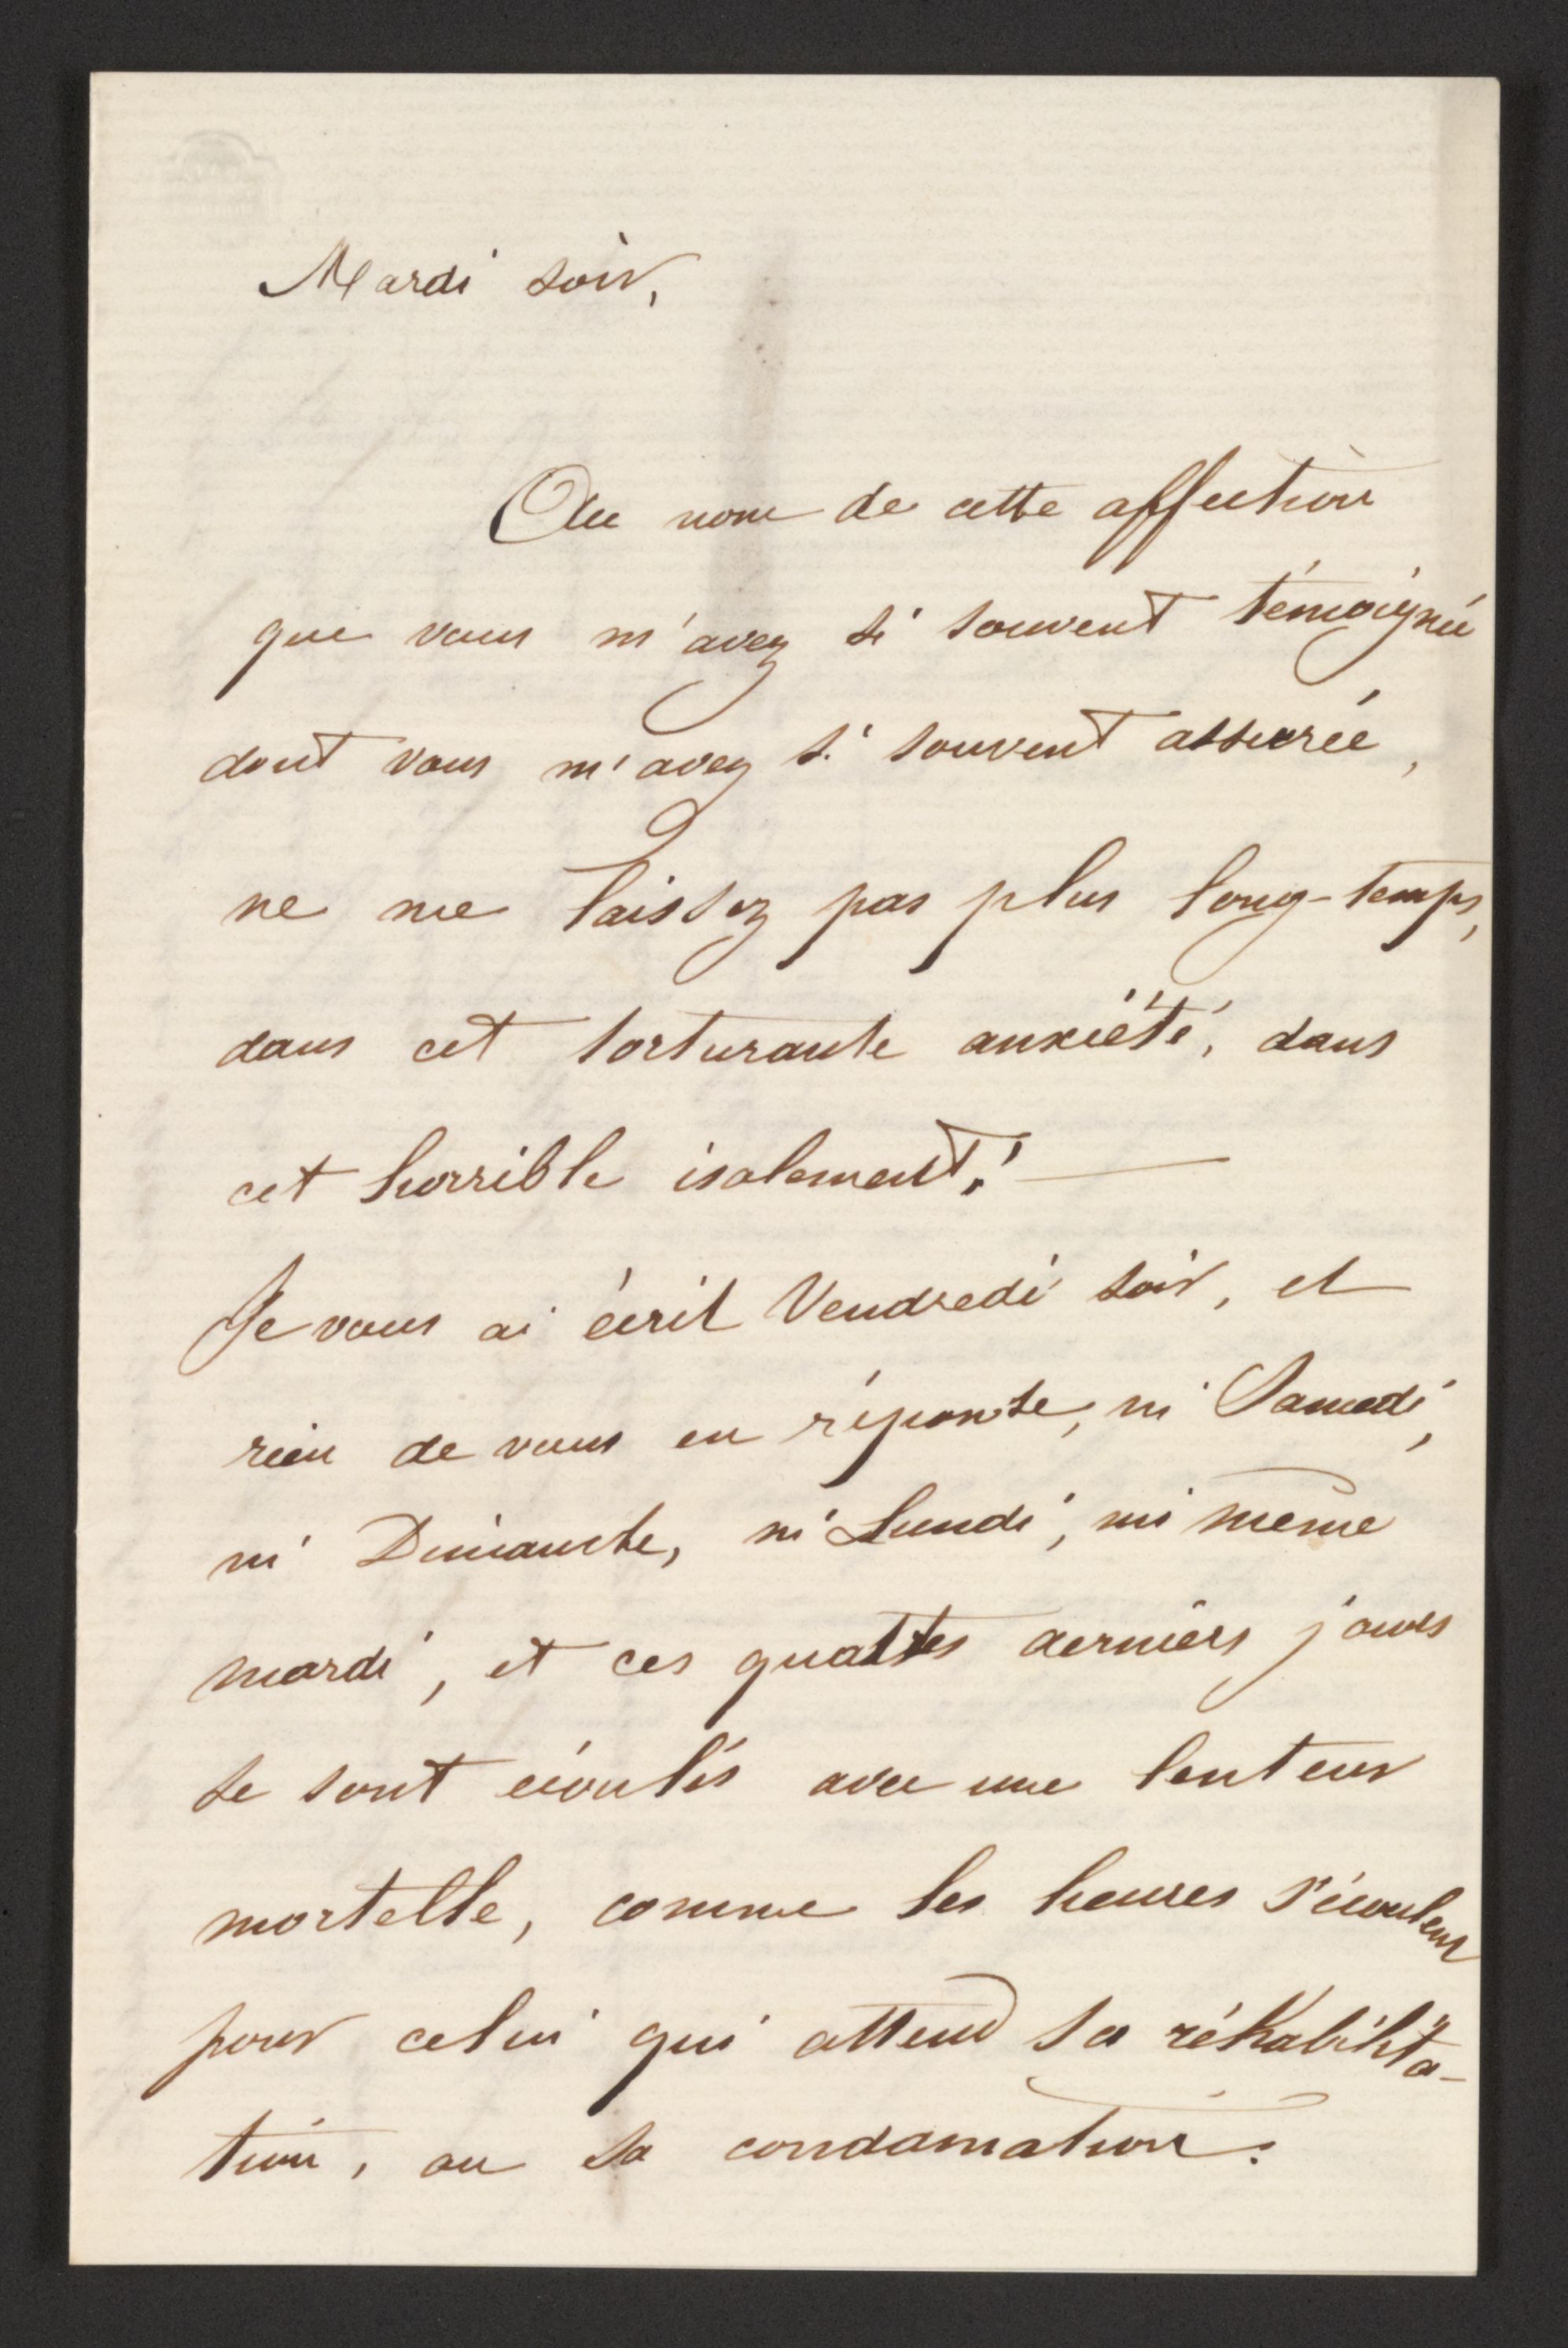 Mardi soir,
Au nom de cette affection
que vous m'avez si souvent témoignée
dont vous m'avez si souvent assurée,
ne me laissez pas plus long-temps,
dans cet torturante anxiété, dans
cet horrible isolement! —
Je vous ai écrit Vendredi soir, et
rien de vous en réponse, ni Samedi,
ni Dimanche, ni Lundi, ni même
mardi, et ces quattes derniers jours
se sont écoulés avec une lenteur
mortelle, comme les heures s'écoulent
pour celui qui attend sa réhabilita-
tion, ou sa condamation.